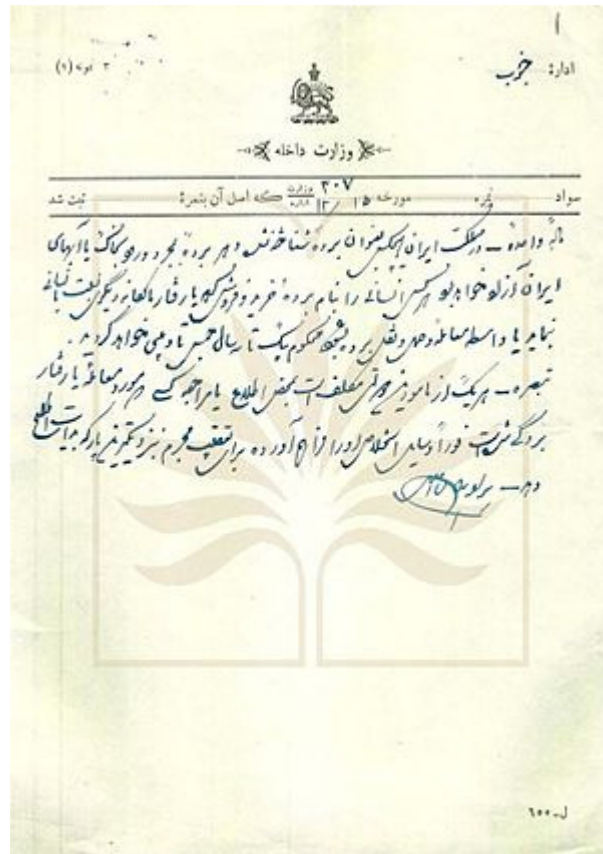 ۱
اداره جنوب
وزارت داخله
سواد نمره مورخه ۱۵/ ۱۲/ ۳۰۷ وزارت اداره که اصل آن بنمرهٔ ثبت شد
مادهٔ واحده – در مملکت ایران هیچکس بعنوان برده شناخته نشده و هر برده بمجرد ورود بخاک یا آبهای
ایران آزاد خواهد بود هر کس انسانی را بنام برده خرید و فروش کرده یا رفتار مالکانه دیگری نسبت بانسانی
نماید یا واسطه معامله و حمل و نقل برده بشود محکوم بیک تا سه سال حبس تأدیبی خواهد گردید.
تبصره – هر یک از مأمورین دولتی مکلف است بمحض اطلاع یا مراجعه کسی که مورد معامله یا رفتار
بردگی شده است فوراً وسایل استخلاص او را فراهم آورده برای تعقیب مجرم نیز نزدیکترین پارکه بدایت را اطلاع
دهد –
ل-۶۵۵